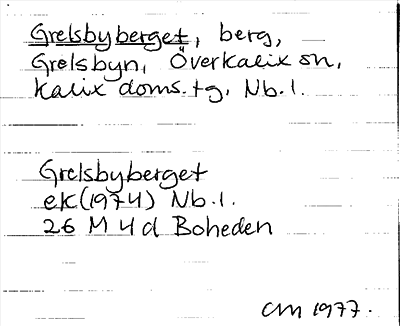 Grelsbyberget, berg,
Grelsbyn, Överkalix sn,
Kalix doms.tg, Nb.l.
Grelsbyberget
ek(1974) Nb.l.
26 M 4 d Boheden
CM 1977.